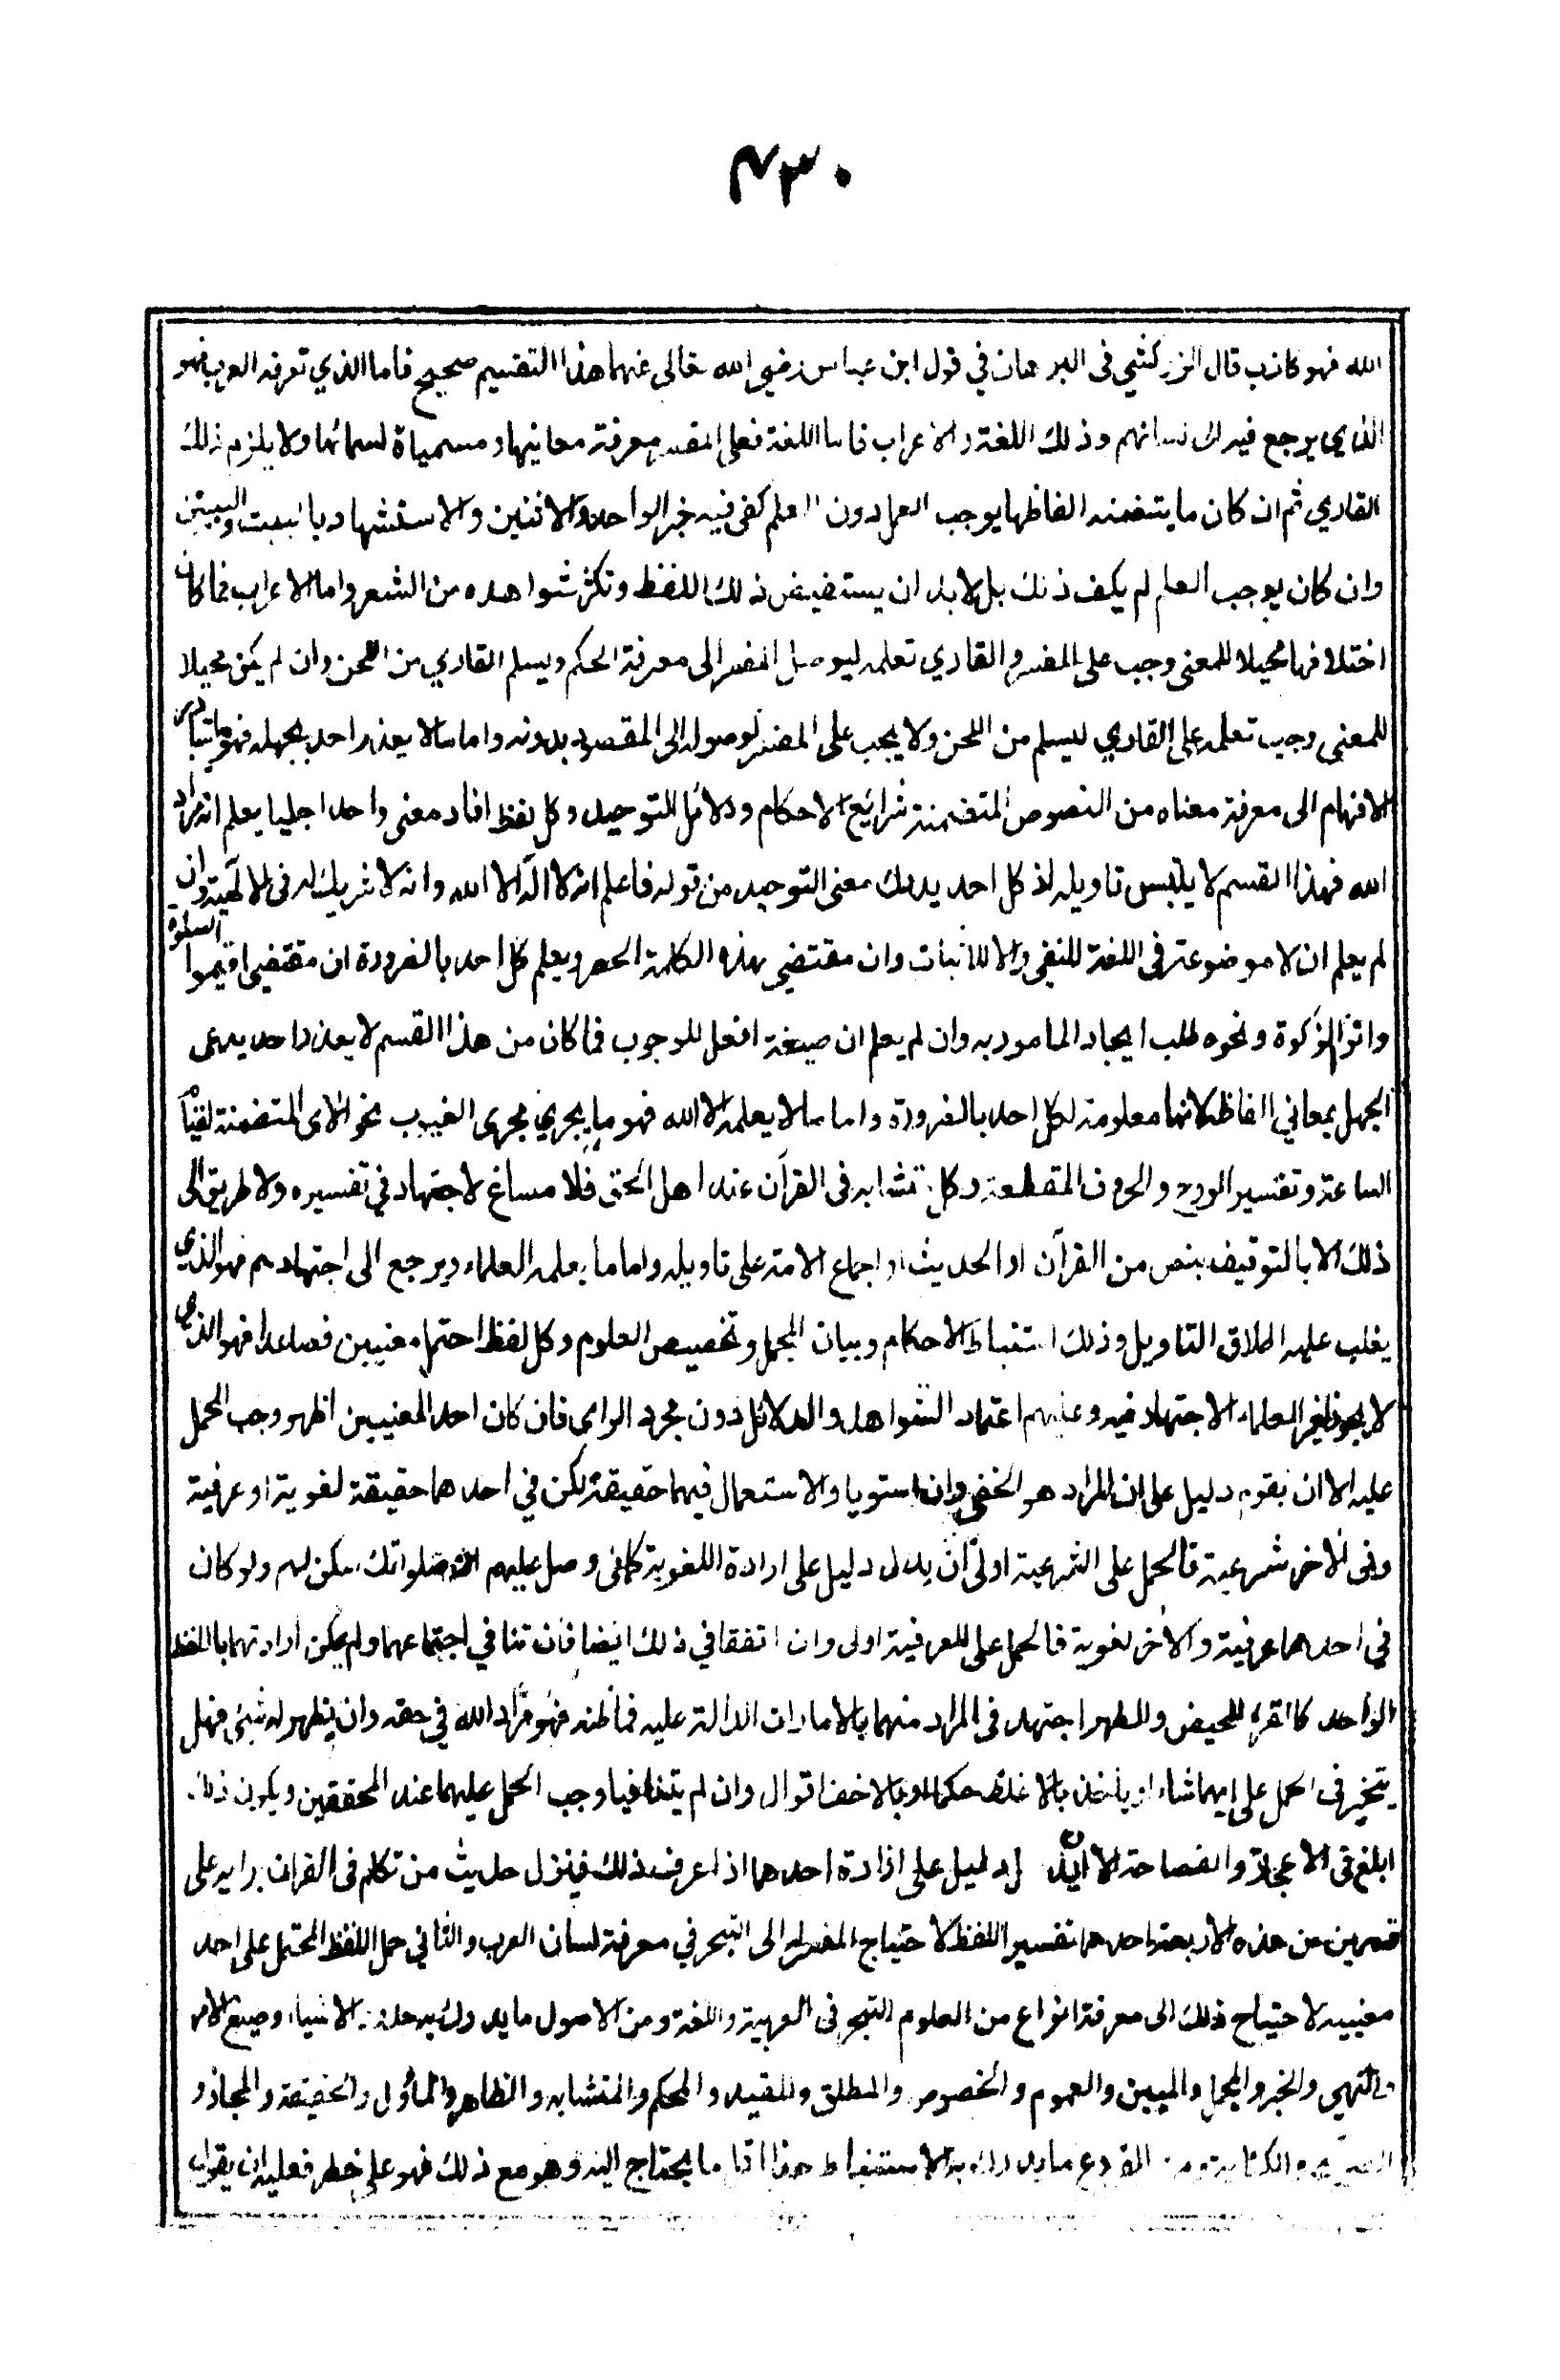 ۴۳۰
الله فهو كاذب قال الزركشي فى البرهان في قول ابن عباس رضي الله تعالى عنهما هذا التقسيم صحيح فاما الذي تعرفه العرب فهو
الذي يرجع فيه الى لسانهم وذلك اللغة والاعراب فاما اللغة فعلى المفسر معرفة معانيها ومسمياة لسمائها ولا يلزم ذلك
القاري ثم ان كان ما يتضمنه الفاظها يوجب العمل دون العلم كفى فيه خبر الواحد والاثنين والاستشهاد بالبيت والبيتين
وان كان يوجب العلم لم يكف ذلك بل لابد ان يستفيض ذلك اللفظ وتكثر شواهده من الشعر واما الاعراب فما كان
اختلافها محيلا للمعنى وجب على المفسر والقاري تعلمه ليوصل المفسر الى معرفة الحكم ويسلم القاري من اللحن وان لم يكن محيلا
للمعنى وجب تعلمه على القاري ليسلم من اللحن ولا يجب على المفسر لوصوله الى المقصود بدونه واما مالا يعذر احد بجهله فهو ما تتبادر
الافهام الى معرفة معناه من النصوص المتضمنة شرائع الاحكام ودلائل التوحيد وكل لفظ افاد معنى واحدا جليا يعلم انه مراد
الله فهذا القسم لا يلتبس تاويله اذ كل احد يدرك معنى التوحيد من قوله فاعلم انه لا اله الا الله وانه لا شريك له فى الالهية وان
لم يعلم ان لا موضوعة فى اللغة للنفي والا للاثبات وان مقتضي هذه الكلمة الحصر ويعلم كل احد بالضرورة ان مقتضى اقيموا الصلوة
واتوا الزكوة ونحوه طلب ايجاد المامور به وان لم يعلم ان صيغة افعل للوجوب فما كان من هذا القسم لا يعذر احد يدعى
الجهل بمعاني الفاظه لانها معلومة لكل احد بالضرورة واما مالا يعلمه الا الله فهو ما يجري مجرى الغيوب نحو الاى المتضمنة لقيام
الساعة وتفسير الروح والحروف المقطعة وكل متشابه فى القرآن عند اهل الحق فلا مساغ لاجتهاد في تفسيره ولا طريق الى
ذلك الا بالتوقيف بنص من القرآن او الحديث او اجماع الامة على تاويله واما ما يعلمه العلماء ويرجع الى اجتهادهم فهو الذي
يغلب عليه اطلاق التاويل وذلك استنباط الاحكام وبيان المجمل وتخصيص العلوم وكل لفظ احتمل معنيين فصاعدا فهو الذي
لا يجوز لغير العلماء الاجتهاد فيه وعليهم اعتماد الشواهد والدلائل دون مجرد الراى فان كان احد المعنيين اظهر وجب الحمل
عليه الا ان يقوم دليل على ان المراد هو الخفي وان استويا والاستعمال فيهما حقيقة لكن في احدهما حقيقة لغوية او عرفية
وفى الاخر شرعية فالحمل على الشرعية اولى ان يدل دليل على ارادة اللغوية كما فى وصل عليهم ان صلواتك سكن لهم ولو كان
في احدهما عرفية والاخر لغوية فالحمل على العرفية اولى وان اتفقا في ذلك ايضا فان تنافي اجتماعهما ولم يمكن ارادتهما باللفظ
الواحد كالقرء للحيض والطهر اجتهد فى المراد منهما بالامارات الدالة عليه فما ظنه فهو مراد الله في حقه وان لم يظهر له شئ فهل
يتخير فى الحمل على ايهما شاء او ياخذ بالاغلظ حكما او بالاخف اقوال وان لم يتنافيا وجب الحمل عليهما عند المحققين ويكون ذلك
ابلغ فى الاعجاز والفصاحة الا ان دل دليل على ارادة احدهما اذا عرف ذلك فينزل حديث من تكلم فى القران برايه على
قسمين من هذه الاربعة احدهما تفسير اللفظ لاحتياج المفسر له الى التبحر في معرفة لسان العرب والثاني حمل اللفظ المحتمل على احد
معنييه لاحتياج ذلك الى معرفة انواع من العلوم التبحر فى العربية واللغة ومن الاصول ما يدرك به حدود الاشياء وصيغ الامر
والنهي والخبر والمجمل والمبين والعموم والخصوص والمطلق والمقيد والمحكم والمتشابه والظاهر والمأول والحقيقة والمجاز و
الصريح والكناية ومن الفروع ما يدرك به الاستنباط هذا اقل ما يحتاج اليه وهو مع ذلك فهو على خطر فعليه ان يقول